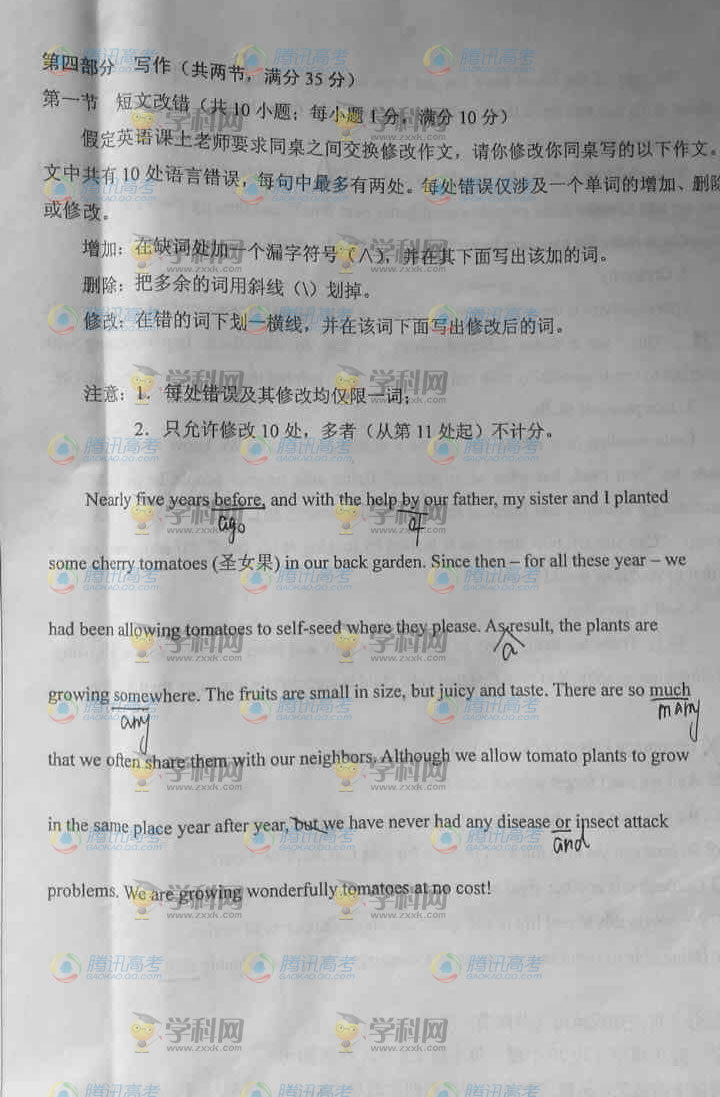 第四部分 写作（共两节，满分 35 分）
第一节 短文改错（共 10 小题；每小题 1 分，满分 10 分）
假定英语课上老师要求同桌之间交换修改作文，请你修改你同桌写的以下作文。
文中共有 10 处语言错误，每句中最多有两处。每处错误仅涉及一个单词的增加、删除
或修改。
增加：在缺词处加一个漏字符号（∧），并在其下面写出该加的词。
删除：把多余的词用斜线（\）划掉。
修改：在错的词下划一横线，并在该词下面写出修改后的词。
注意：1．每处错误及其修改均仅限一词；
2．只允许修改 10 处，多者（从第 11 处起）不计分。
Nearly five years before, and with the help by our father, my sister and I planted
ago of
some cherry tomatoes (圣女果) in our back garden. Since then – for all these year – we
had been allowing tomatoes to self-seed where they please. As result, the plants are
a
growing somewhere. The fruits are small in size, but juicy and taste. There are so much
any many
that we often share them with our neighbors. Although we allow tomato plants to grow
in the same place year after year, but we have never had any disease or insect attack
and
problems. We are growing wonderfully tomatoes at no cost!
学科网
www.zxxk.com
腾讯高考
GAOKAO.QQ.COM